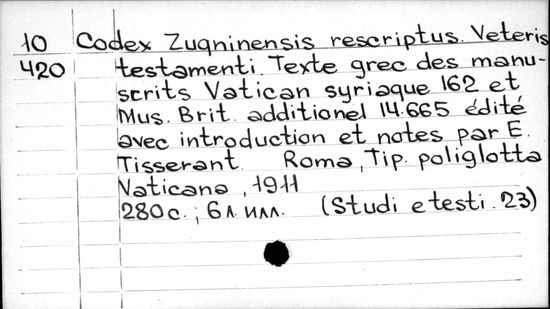 10 Codex Zuqninensis rescriptus. Veteris
420 testamenti. Texte grec des manu-
scrits Vatican syriaque 162 et
Mus. Brit. additionel 14.665 édité
avec introduction et notes par E.
Tisserant. Roma, Tip. poliglotta
Vaticana, 1911
280 c.; 6 л. илл. (Studi e testi. 23)